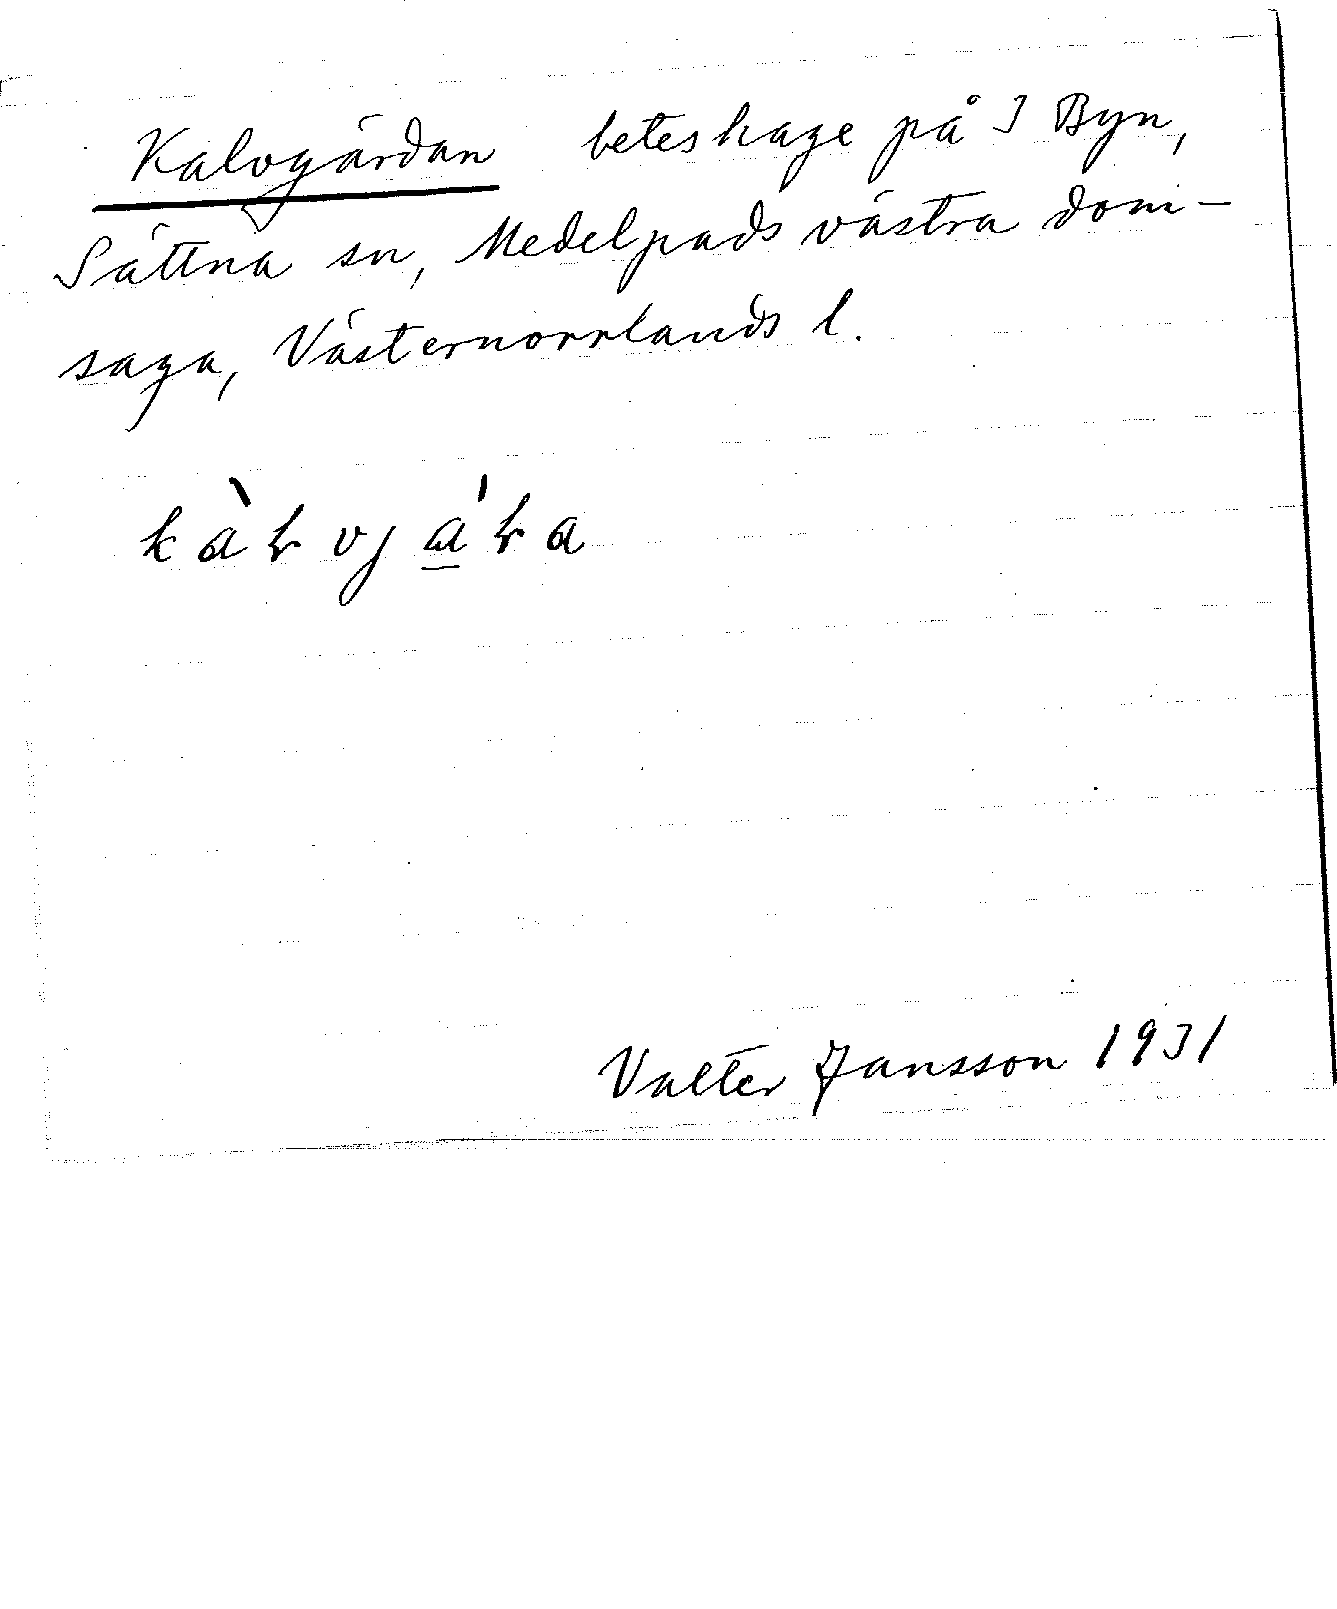 Kalvgärdan beteshage på 3 Byn,
Sättna sn, Medelpads västra dom-
saga, Västernorrlands l.
Valter Jansson 1931